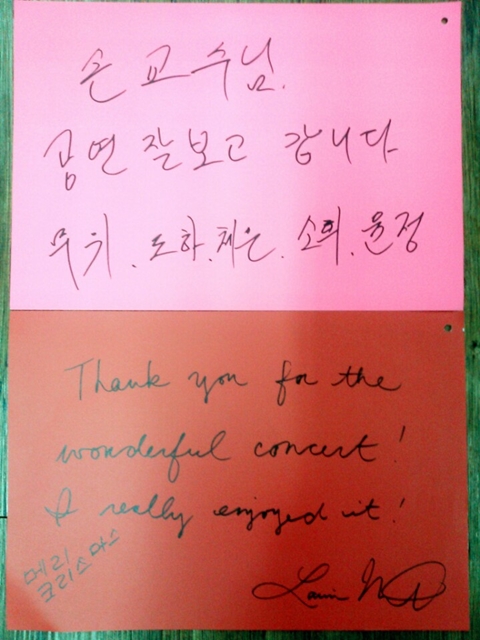 손 교수님.
공연 잘보고 갑니다
무치. 도하. 채은. 소희. 윤정
Thank you for the
wonderful concert!
I really enjoyed it!
메리
크리스마스